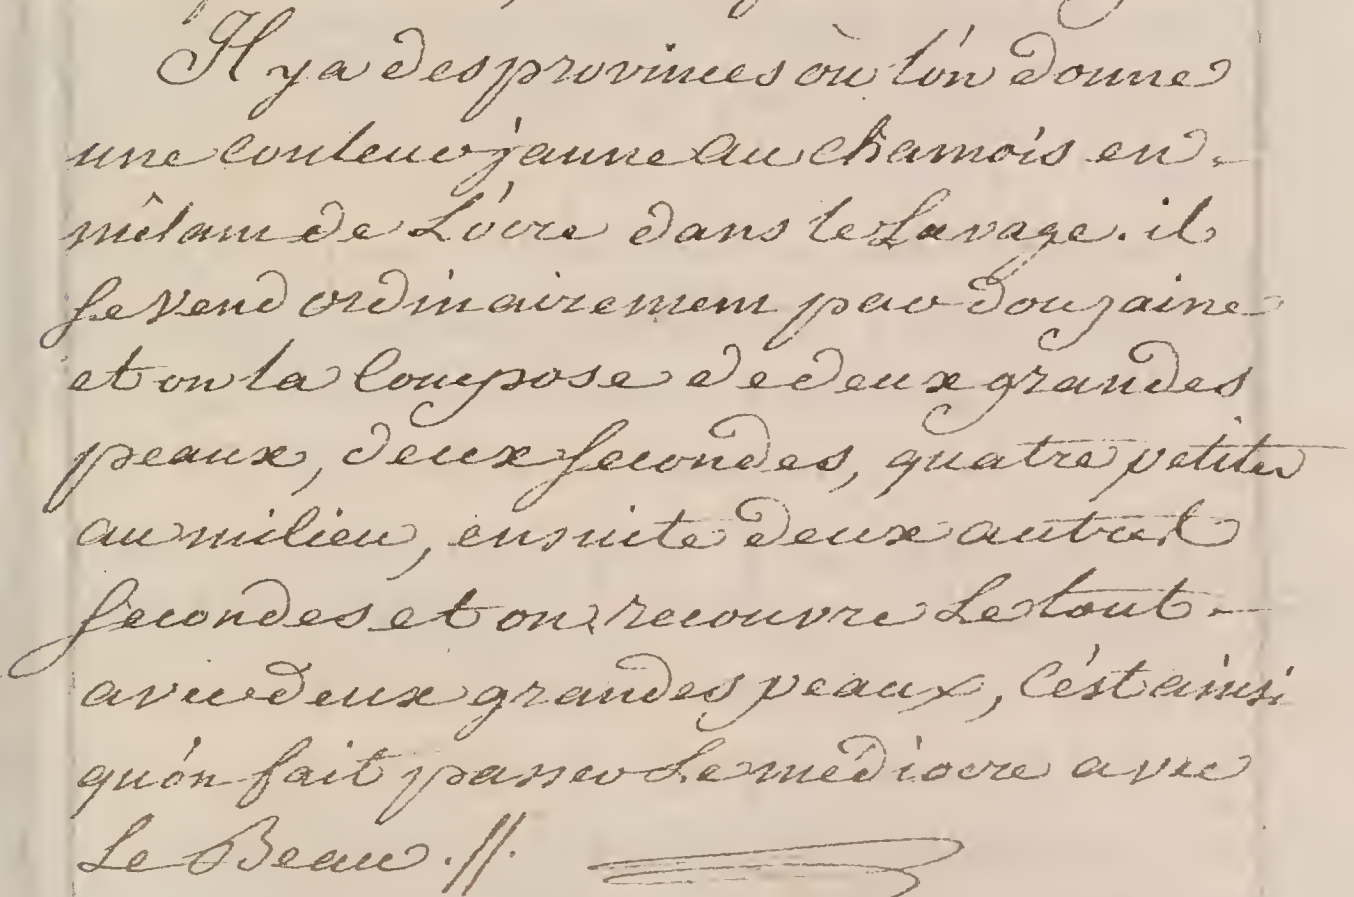 Il y a des provinces où l'on donne
une couleur jaune au chamois en
mêlant de L'ocre dans le Lavage. il
se vend ordinairement par douzaine
et on la Compose de deux grandes
peaux, deux secondes, quatre petites
au milieu, ensuite deux autres
secondes et on recouvre Le tout
avec deux grandes peaux, C'est ainsi
qu'on fait passer Le médiocre avec
Le Beau.//.